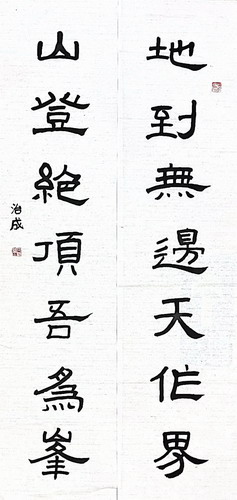 地到無邊天作界
山登絕頂吾為峯
治成